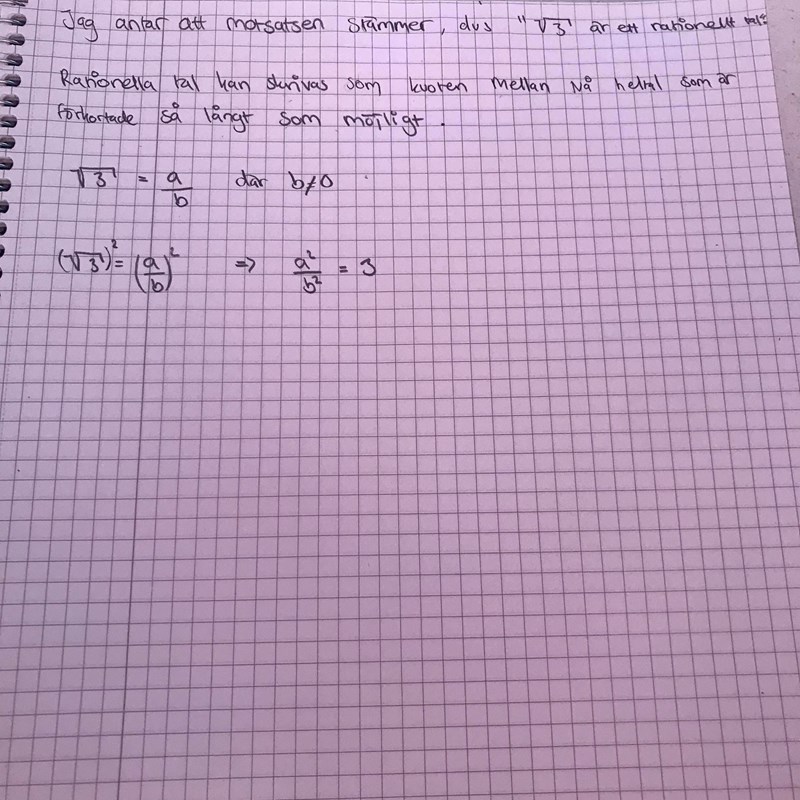 Jag antar att motsatsen stämmer, dvs "√3 är ett rationellt tal"
Rationella tal kan skrivas som kvoten mellan två heltal som är
förkortade så långt som möjligt.
√3 = a/b där b≠0
(√3)² = (a/b)² => a²/b² = 3